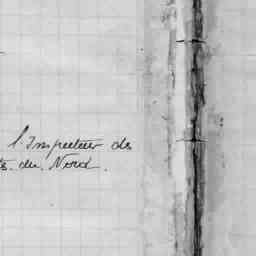 l'Inspecteur des
ts. du. Nord.